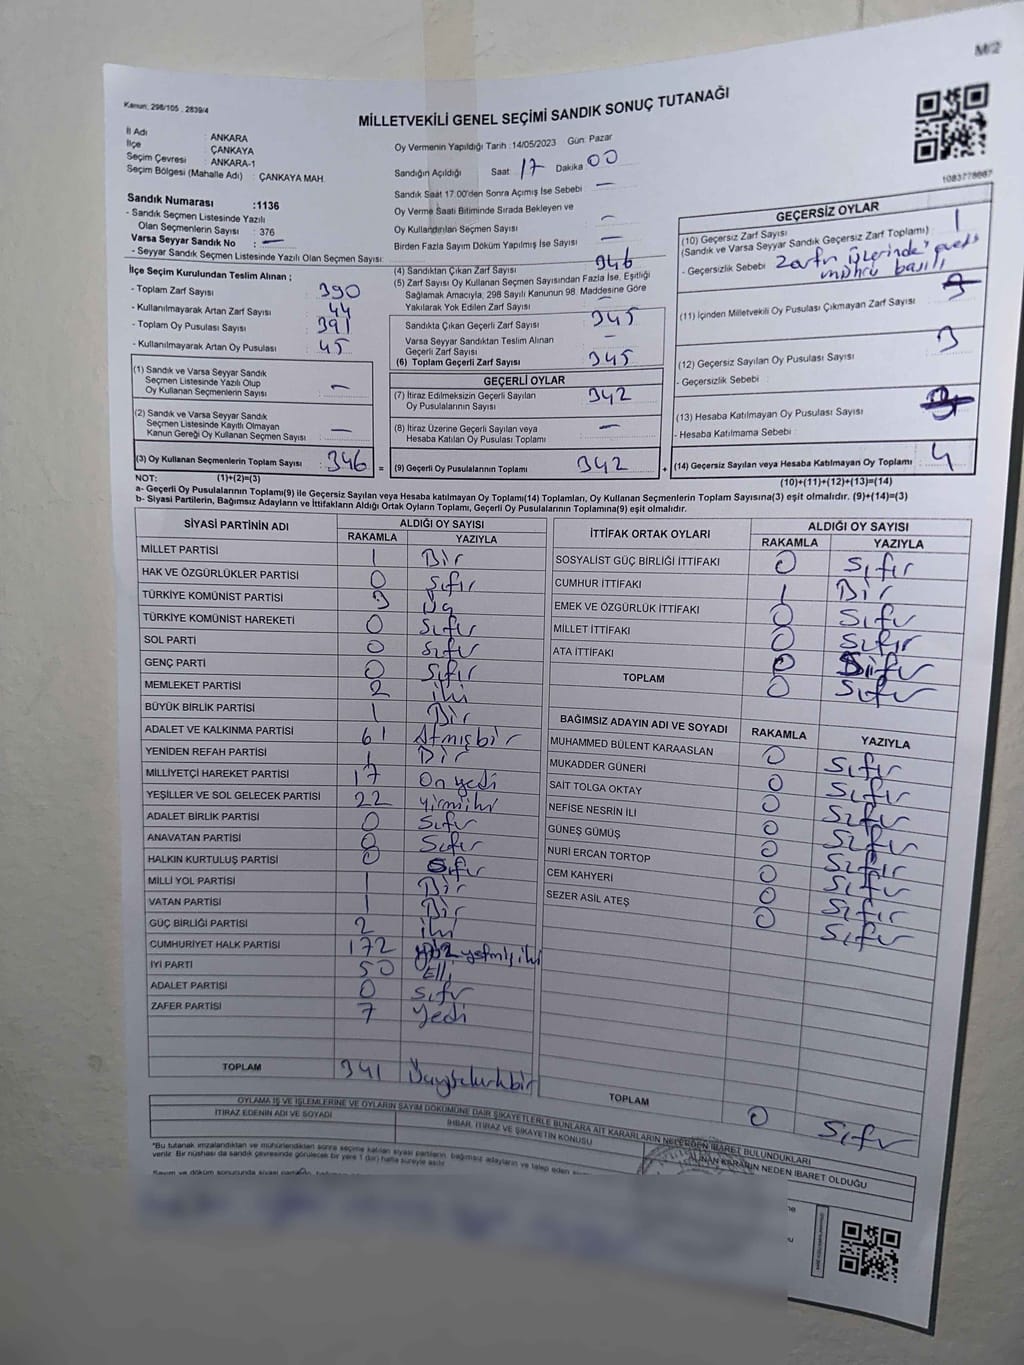 M/2
Kanun: 298/105 : 2839/4
MİLLETVEKİLİ GENEL SEÇİMİ SANDIK SONUÇ TUTANAĞI
1083778667
İl Adı : ANKARA
İlçe : ÇANKAYA
Seçim Çevresi : ANKARA-1
Seçim Bölgesi (Mahalle Adı) : ÇANKAYA MAH.
Oy Vermenin Yapıldığı Tarih :14/05/2023 Gün: Pazar
Sandığın Açıldığı Saat 17 Dakika 00
Sandık Saat 17.00'den Sonra Açımış İse Sebebi —
Oy Verme Saati Bitiminde Sırada Bekleyen ve
Oy Kullandırılan Seçmen Sayısı —
Birden Fazla Sayım Döküm Yapılmış İse Sayısı —
Sandık Numarası :1136
- Sandık Seçmen Listesinde Yazılı
Olan Seçmenlerin Sayısı : 376
Varsa Seyyar Sandık No : —
- Seyyar Sandık Seçmen Listesinde Yazılı Olan Seçmen Sayısı:
İlçe Seçim Kurulundan Teslim Alınan ;
- Toplam Zarf Sayısı : 390
- Kullanılmayarak Artan Zarf Sayısı : 44
- Toplam Oy Pusulası Sayısı : 391
- Kullanılmayarak Artan Oy Pusulası : 45
(1) Sandık ve Varsa Seyyar Sandık
Seçmen Listesinde Yazılı Olup
Oy Kullanan Seçmenlerin Sayısı : —
(2) Sandık ve Varsa Seyyar Sandık
Seçmen Listesinde Kayıtlı Olmayan
Kanun Gereği Oy Kullanan Seçmen Sayısı : —
(3) Oy Kullanan Seçmenlerin Toplam Sayısı : 346 =
(4) Sandıktan Çıkan Zarf Sayısı 346
(5) Zarf Sayısı Oy Kullanan Seçmen Sayısından Fazla İse, Eşitliği
Sağlamak Amacıyla, 298 Sayılı Kanunun 98. Maddesine Göre
Yakılarak Yok Edilen Zarf Sayısı : —
Sandıkta Çıkan Geçerli Zarf Sayısı 345
Varsa Seyyar Sandıktan Teslim Alınan
Geçerli Zarf Sayısı —
(6) Toplam Geçerli Zarf Sayısı 345
GEÇERLİ OYLAR
(7) İtiraz Edilmeksizin Geçerli Sayılan
Oy Pusulalarının Sayısı 342
(8) İtiraz Üzerine Geçerli Sayılan veya
Hesaba Katılan Oy Pusulası Toplamı —
(9) Geçerli Oy Pusulalarının Toplamı 342 +
GEÇERSİZ OYLAR
(10) Geçersiz Zarf Sayısı 1
(Sandık ve Varsa Seyyar Sandık Geçersiz Zarf Toplamı)
- Geçersizlik Sebebi : Zarfın üzerinde
mührü basılı
(11) İçinden Milletvekili Oy Pusulası Çıkmayan Zarf Sayısı
(12) Geçersiz Sayılan Oy Pusulası Sayısı 3
- Geçersizlik Sebebi :
(13) Hesaba Katılmayan Oy Pusulası Sayısı
- Hesaba Katılmama Sebebi :
(14) Geçersiz Sayılan veya Hesaba Katılmayan Oy Toplamı : 4
NOT: (1)+(2)=(3) (10)+(11)+(12)+(13)=(14)
a- Geçerli Oy Pusulalarının Toplamı(9) ile Geçersiz Sayılan veya Hesaba katılmayan Oy Toplamı(14) Toplamları, Oy Kullanan Seçmenlerin Toplam Sayısına(3) eşit olmalıdır. (9)+(14)=(3)
b- Siyasi Partilerin, Bağımsız Adayların ve İttifakların Aldığı Ortak Oyların Toplamı, Geçerli Oy Pusulalarının Toplamına(9) eşit olmalıdır.
SİYASİ PARTİNİN ADI ALDIĞI OY SAYISI
RAKAMLA YAZIYLA
MİLLET PARTİSİ 1 Bir
HAK VE ÖZGÜRLÜKLER PARTİSİ 0 Sıfır
TÜRKİYE KOMÜNİST PARTİSİ 3 Üç
TÜRKİYE KOMÜNİST HAREKETİ 0 Sıfır
SOL PARTİ 0 Sıfır
GENÇ PARTİ 0 Sıfır
MEMLEKET PARTİSİ 2 iki
BÜYÜK BİRLİK PARTİSİ 1 Bir
ADALET VE KALKINMA PARTİSİ 61 Atmışbir
YENİDEN REFAH PARTİSİ 1 Bir
MİLLİYETÇİ HAREKET PARTİSİ 17 On yedi
YEŞİLLER VE SOL GELECEK PARTİSİ 22 yirmiiki
ADALET BİRLİK PARTİSİ 0 Sıfır
ANAVATAN PARTİSİ 0 Sıfır
HALKIN KURTULUŞ PARTİSİ 0 Sıfır
MİLLİ YOL PARTİSİ 1 Bir
VATAN PARTİSİ 1 Bir
GÜÇ BİRLİĞİ PARTİSİ 2 iki
CUMHURİYET HALK PARTİSİ 172 yetmişiki
İYİ PARTİ 50 Elli
ADALET PARTİSİ 0 Sıfır
ZAFER PARTİSİ 7 Yedi
TOPLAM 341 Üçyüzkırkbir
İTTİFAK ORTAK OYLARI ALDIĞI OY SAYISI
RAKAMLA YAZIYLA
SOSYALİST GÜÇ BİRLİĞİ İTTİFAKI 0 Sıfır
CUMHUR İTTİFAKI 1 Bir
EMEK VE ÖZGÜRLÜK İTTİFAKI 0 Sıfır
MİLLET İTTİFAKI 0 Sıfır
ATA İTTİFAKI 0 Sıfır
TOPLAM 0 Sıfır
BAĞIMSIZ ADAYIN ADI VE SOYADI RAKAMLA YAZIYLA
MUHAMMED BÜLENT KARAASLAN 0 Sıfır
MUKADDER GÜNERİ 0 Sıfır
SAİT TOLGA OKTAY 0 Sıfır
NEFİSE NESRİN İLİ 0 Sıfır
GÜNEŞ GÜMÜŞ 0 Sıfır
NURİ ERCAN TORTOP 0 Sıfır
CEM KAHYERİ 0 Sıfır
SEZER ASİL ATEŞ 0 Sıfır
TOPLAM 0 Sıfır
OYLAMA İŞ VE İŞLEMLERİNE VE OYLARIN SAYIM DÖKÜMÜNE DAİR ŞİKAYETLERLE BUNLARA AİT KARARLARIN NELERDEN İBARET BULUNDUKLARI
İTİRAZ EDENİN ADI VE SOYADI İHBAR, İTİRAZ VE ŞİKAYETİN KONUSU ALINAN KARARIN NEDEN İBARET OLDUĞU
*Bu tutanak imzalandıktan ve mühürlendikten sonra seçime katılan siyasi partilerin, bağımsız adayların ve talep eden
verilir. Bir nüshası da sandık çevresinde görülecek bir yere 1 (bir) hafta süreyle asılır.
Sayım ve döküm sonucunda siyasi